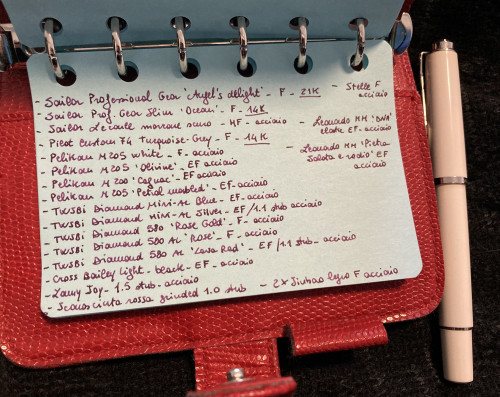 - Sailor Professional Gear 'Angel's delight' - F - 21K
- Sailor Prof. Gear Slim 'Ocean' - F - 14K
- Sailor Lecoule marrone scuro - MF - acciaio
- Pilot Custom 74 Turquoise-Grey - F - 14K
- Pelikan M205 white - F - acciaio
- Pelikan M205 'Olivine' EF acciaio
- Pelikan M200 'Cognac' - EF acciaio
- Pelikan M205 'Petrol marbled' - EF - acciaio
- TWSBI Diamond Mini-AL Blue - EF - acciaio
- TWSBI Diamond Mini-AL Silver - EF / 1.1 stub acciaio
- TWSBI Diamond 580 'Rose Gold' - F - acciaio
- TWSBI Diamond 580 AL 'Rose' - F - acciaio
- TWSBI Diamond 580 AL 'Lava Red' - EF / 1.1 stub - acciaio
- Cross Bailey Light - black - EF - acciaio
- Lamy Joy - 1.5 stub - acciaio
- Sconosciuta rossa grinded 1.0 stub
- 2x Jinhao legno F acciaio
- Stelle F
acciaio
- Leonardo MM
EF - acciaio
- Leonardo MM 'Pietra
Salata e radio' EF
acciaio